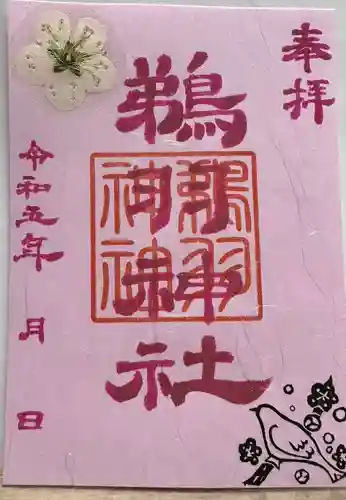 奉拝
鵜羽神社
鵜羽
神社
令和五年 月 日